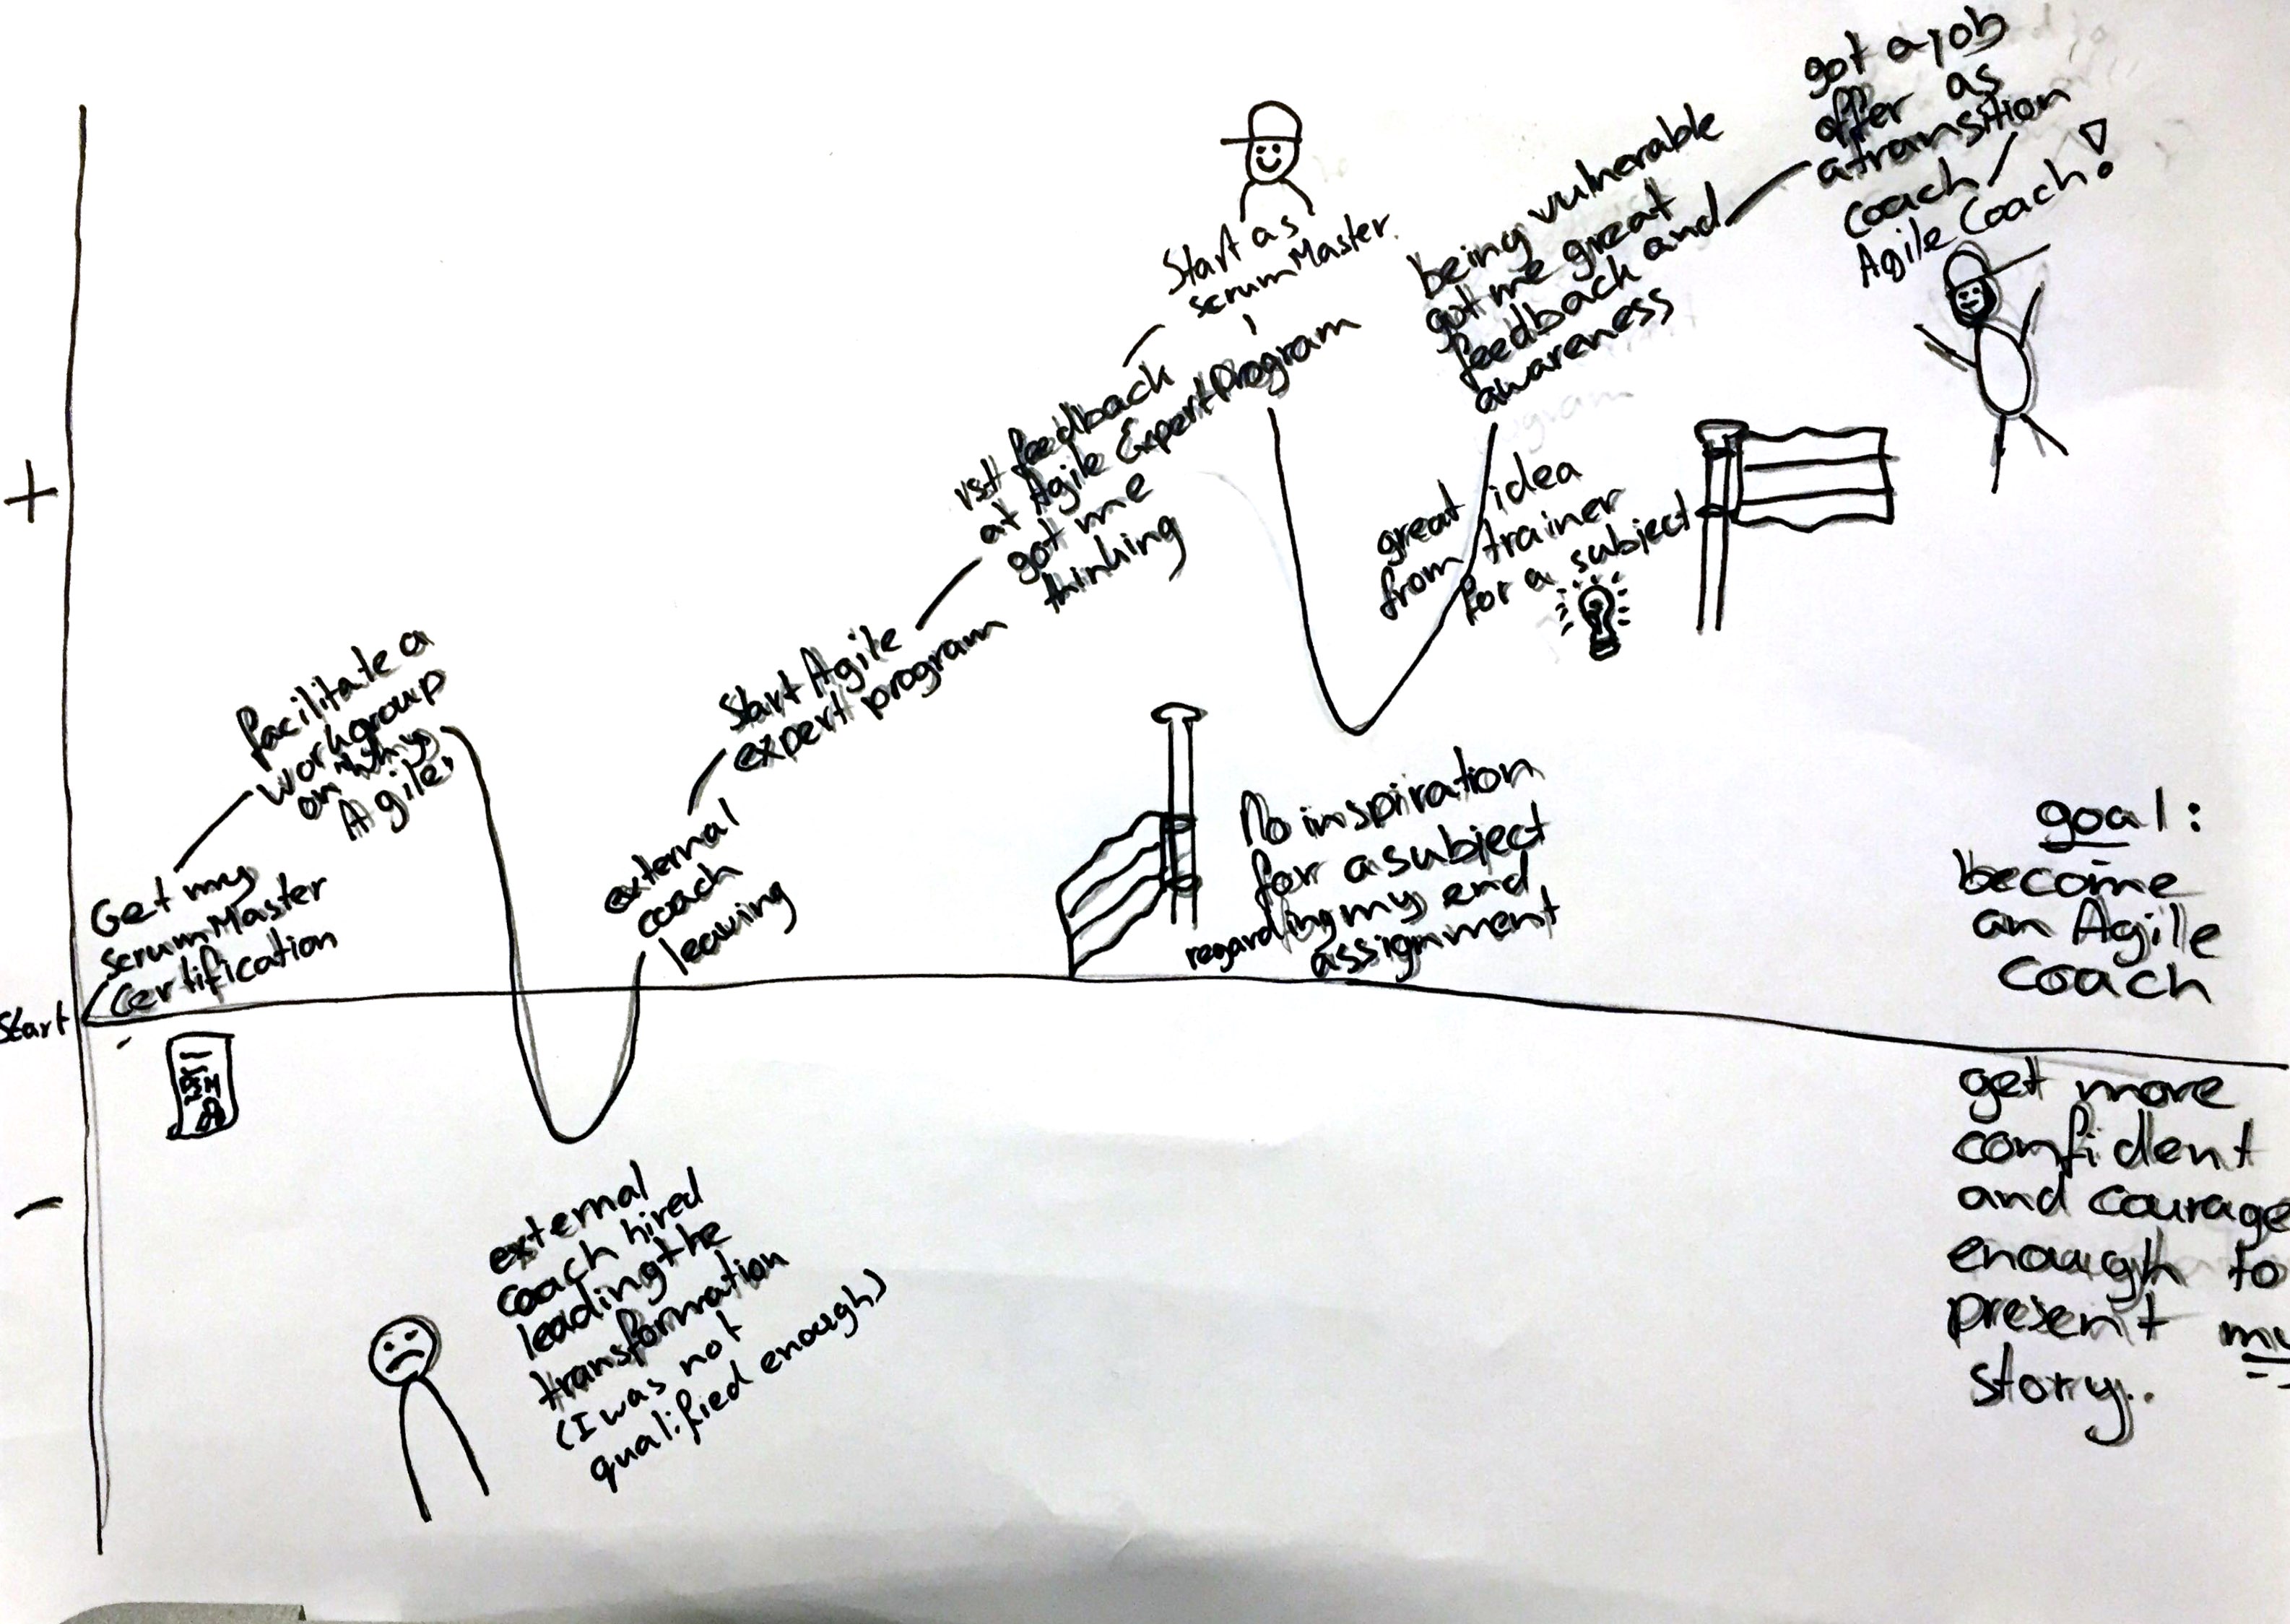 +
-
Start
Get my
scrumMaster
certification
PSM
facilitate a
workgroup
on "why
Agile"
external
coach hired
leading the
transformation
(I was not
qualified enough)
external
coach
leaving
Start Agile
expert program
1st feedback
at Agile Expert Program
got me
thinking
Start as
scrumMaster.
No inspiration
for a subject
regarding my end
assignment
great idea
from trainer
for a subject
being vulnerable
got me great
feedback and
awareness
got a job
offer as
a transition
coach /
Agile Coach!
goal:
become
an Agile
Coach
get more
confident
and courage
enough to
present my
story..